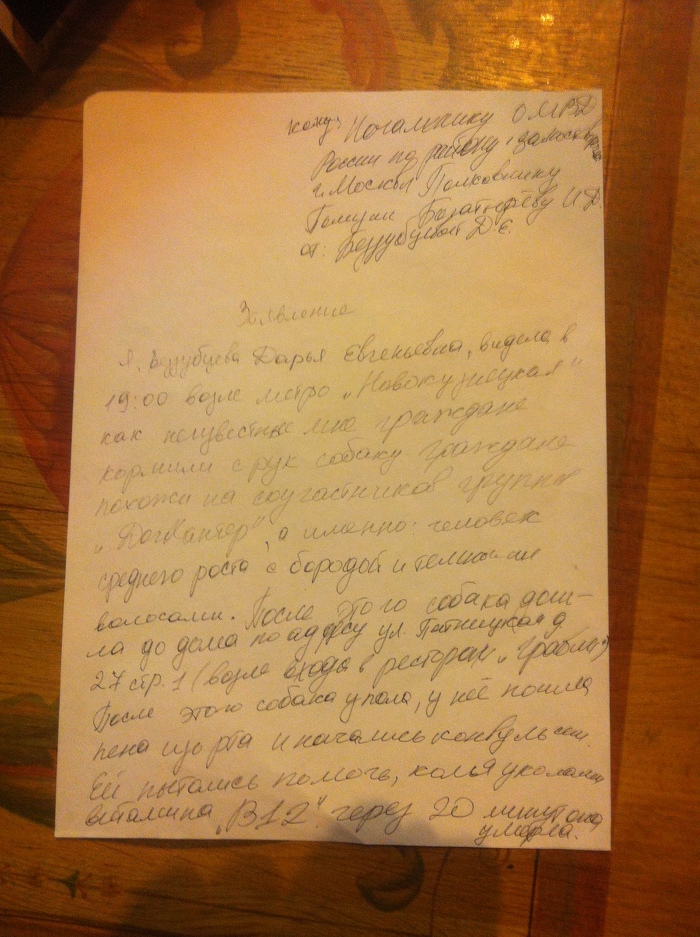 кому: Начальнику ОМВД
России по району "Замоскворе
г. Москвы Полковнику
Полиции Богатырёву И.Д.
от: Беззубцевой Д.Е.
Заявление
Я, Беззубцева Дарья Евгеньевна, видела в
19:00 возле метро „Новокузнецкая"
как неизвестные мне граждане
кормили с рук собаку граждане
похожи на соучастников группы
„ДогХантер", а именно: человек
среднего роста с бородой и темными
волосами. После этого собака дош-
ла до дома по адресу ул. Пятницкая д
27 стр. 1 (возле входа в ресторан „Грабли")
После этого собака упала, у неё пошла
пена изо рта и начались конвульсии.
Ей пытались помочь, коля уколами
витамина „В12". через 20 минут она
умерла.